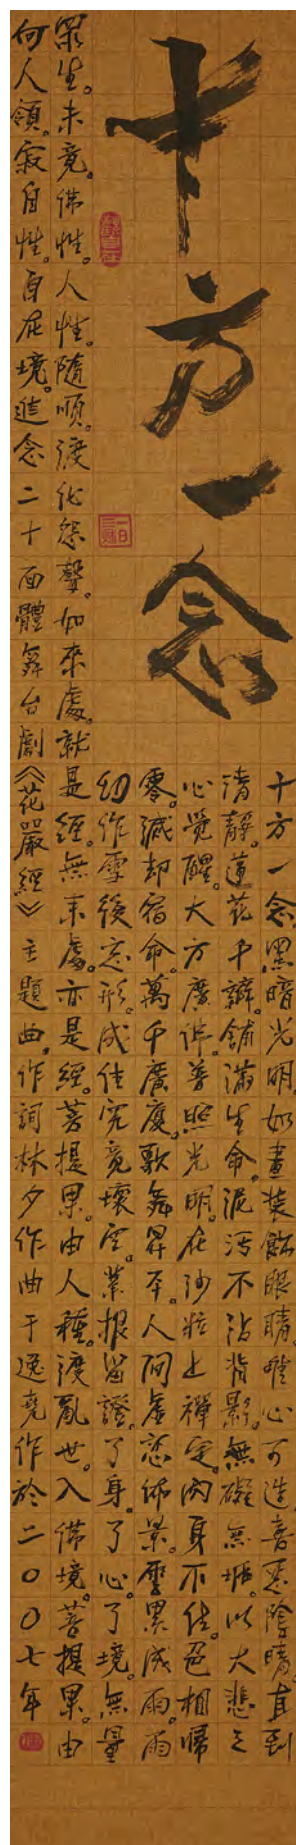 十方一念
十方一念。黑暗光明。如畫裝飾眼睛。唯心可造善惡陰晴。直到
清靜。蓮花千瓣。鋪滿生命。泥污不沾背影。無礙無垢。以大悲之
心覺醒。大方廣佛。普照光明。在沙粒上禪定。肉身不住。色相歸
零。滅却宿命。萬千廣廈。歌舞昇平。人間虛戀佈景。塵累成雨。雨
幻作雪後忘形。成住究竟壞空。業根留證。了身。了心。了境。無量
眾生。未竟佛性。人性。隨順。渡化怨聲。如來處。就是經。無來處。亦是經。菩提果。由人種。渡亂世。入佛境。菩提果。由
何人領。寂自性。自在境。進念二十面體舞台劇《花嚴經》主題曲。作詞林夕作曲于逸堯作於二〇〇七年
觀自在